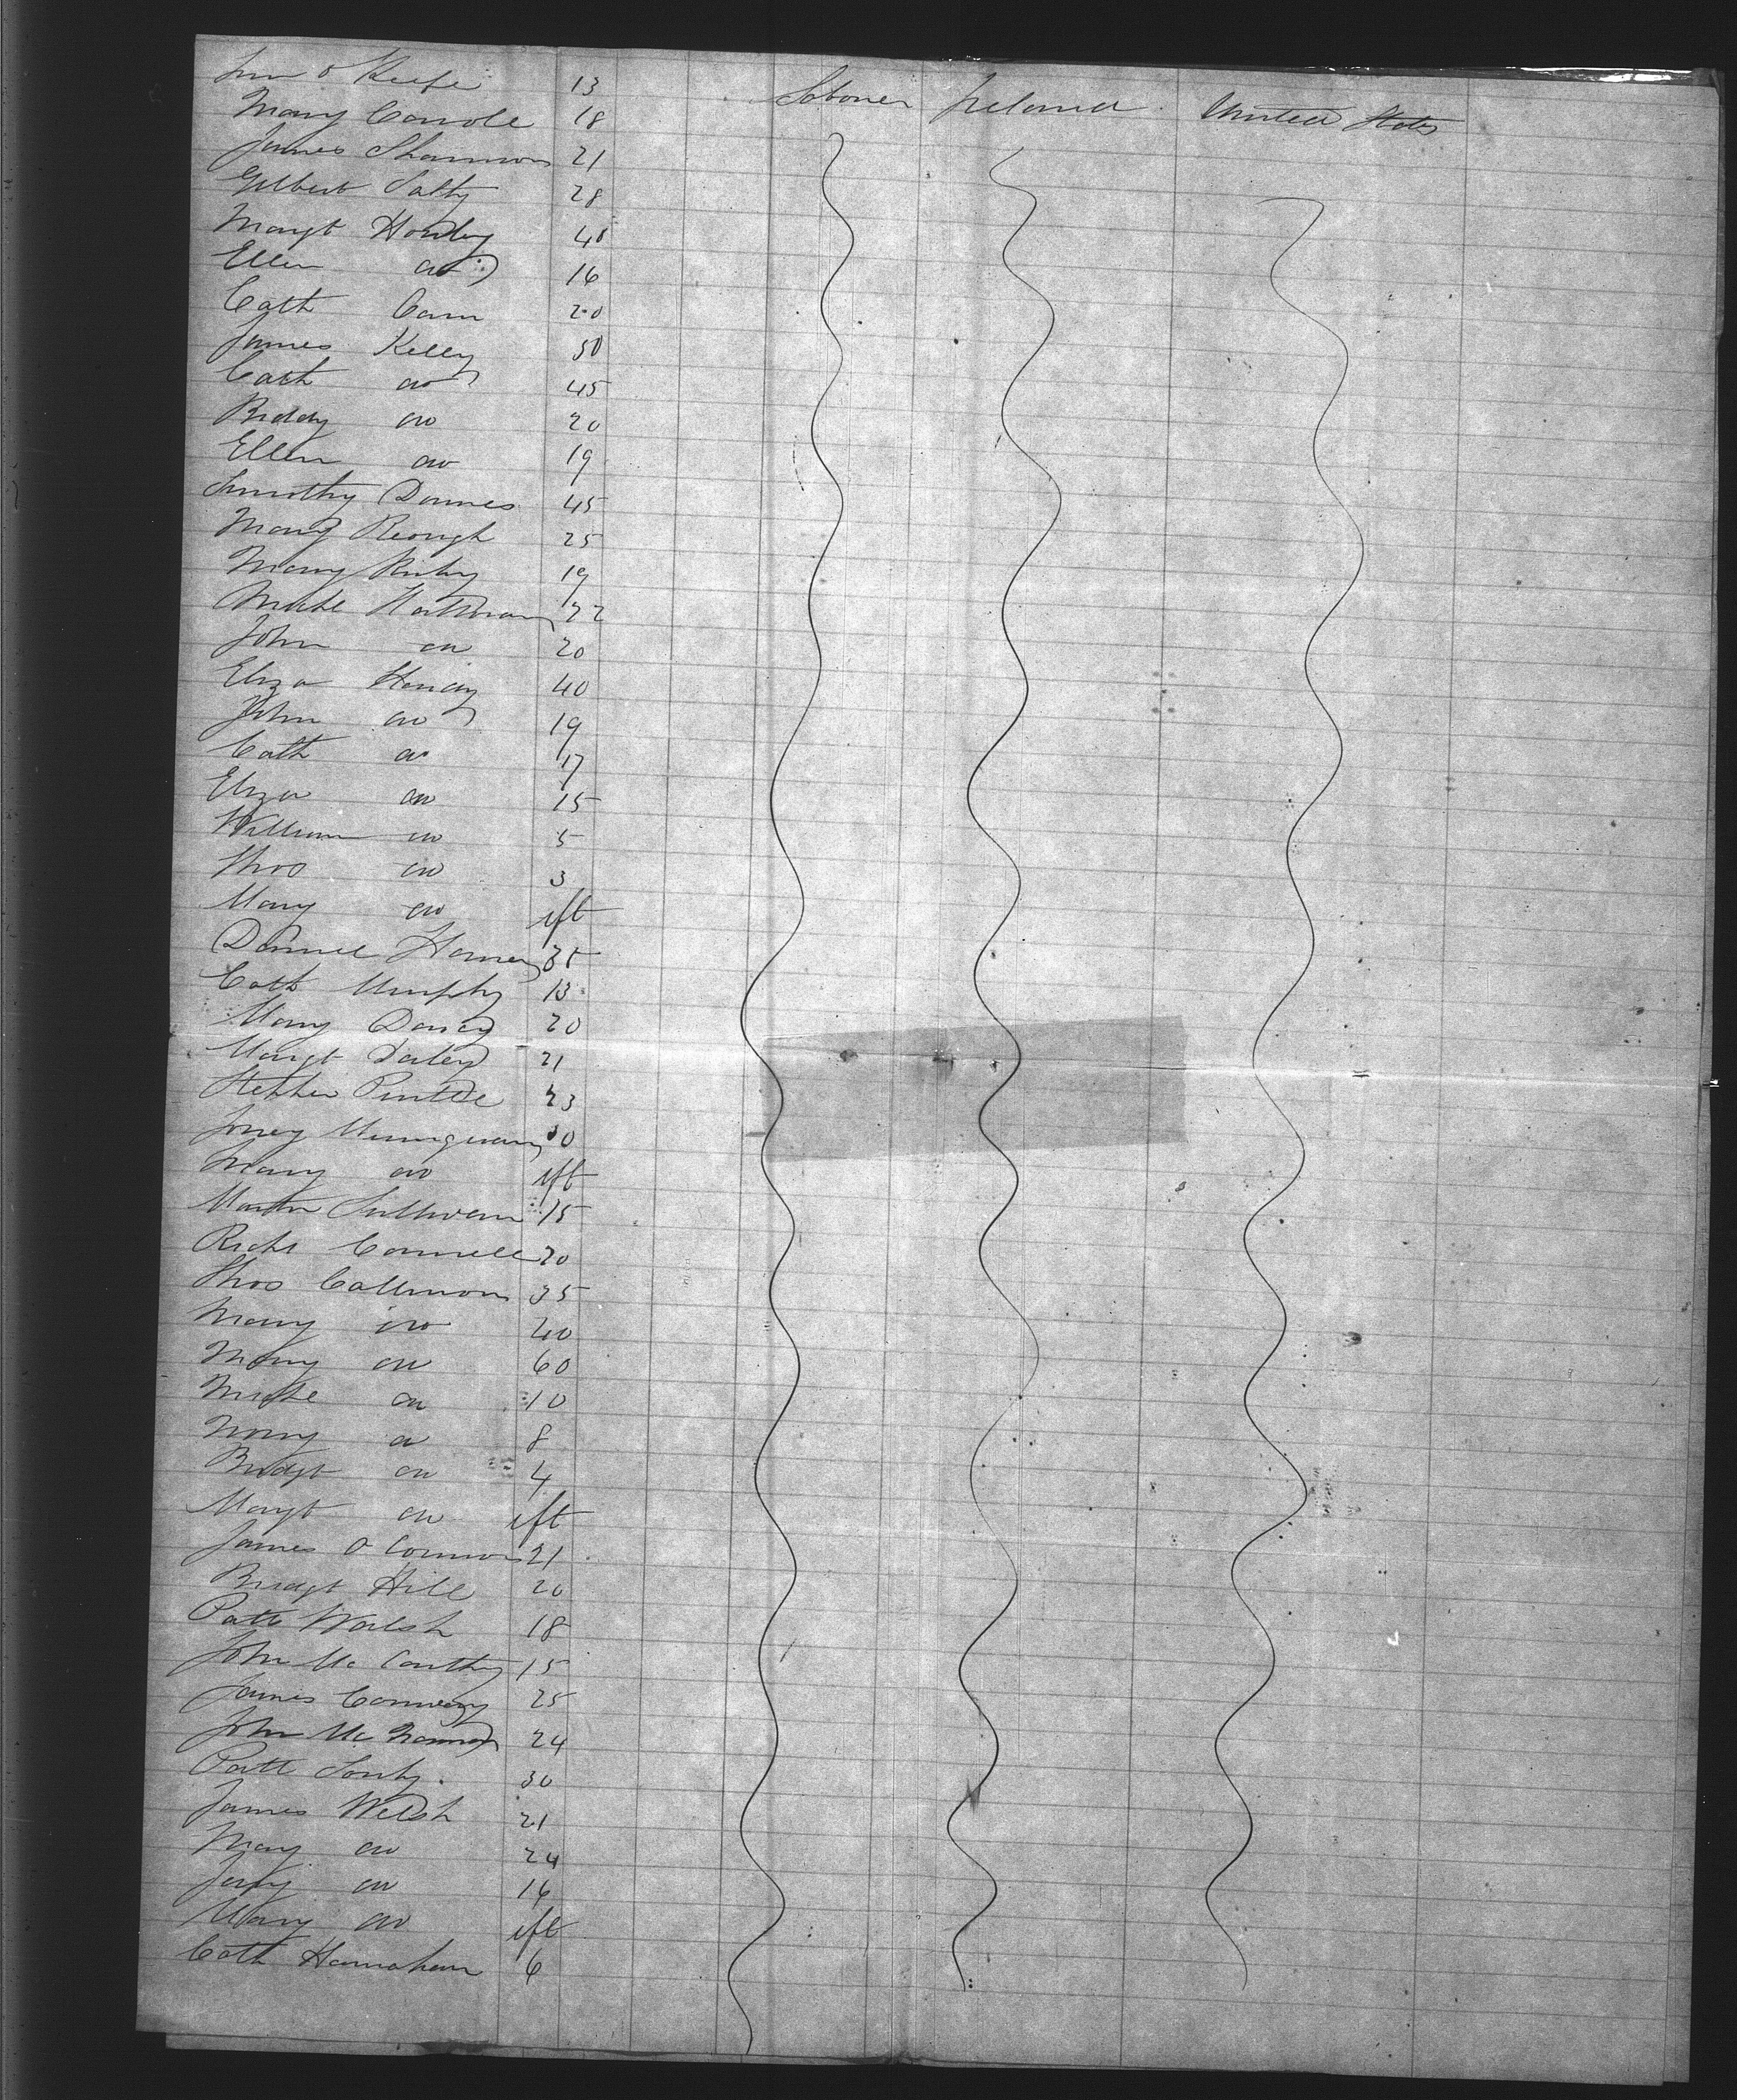 O Keefe 13 Laborer Ireland United States
Mary Carrole 18
James Shannon 21
Gilbert 28
Margt Hanley 40
Ellen do 16
Cath 20
James Kelly 50
Cath do 45
Biddy do 20
Ellen do 19
Timothy Downes 45
Mary Keough 25
Mary 19
Michl 22
John do 20
Eliza 40
John do 19
Cath do 17
Eliza do 15
William do 5
Thos do 3
Mary do ift
Daniel 35
Cath Murphy 13
Mary Darcy 20
Margt Daley 21
Stephen 23
30
Mary do ift
Martin Sullivan 15
Richd Connell 20
Thos Callinan 35
Mary do 40
Mary do 60
Michl do 10
do 8
Bridgt do 4
Margt do ift
James O Connor 21
Bridgt Hill 20
Patk Walsh 18
John Mc Carthy 15
James Conway 25
John Mc 24
Patk 30
James Welsh 21
Mary do 24
do 16
Mary do ift
Cath Hannahan 6